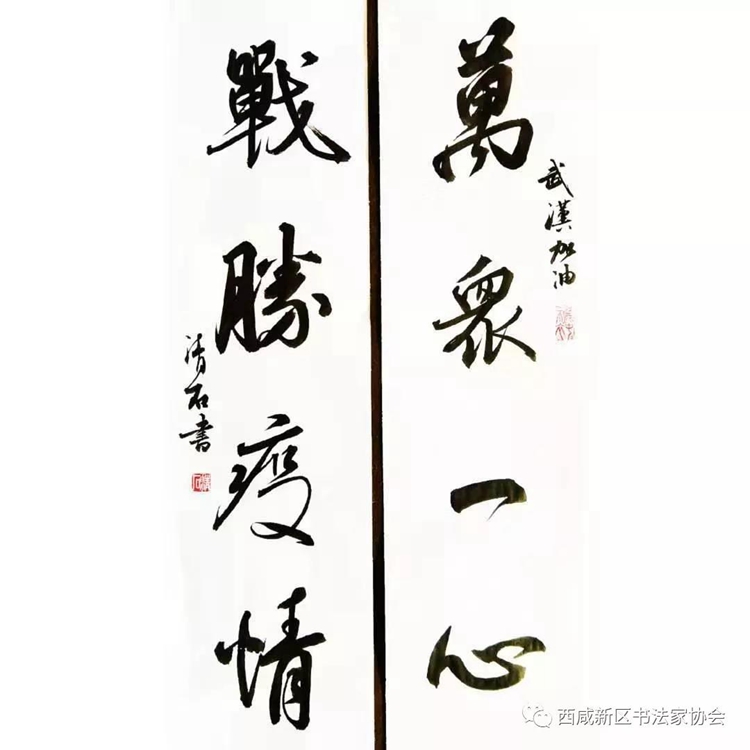 萬眾一心
武漢加油
戰勝疫情
清石書
西咸新区书法家协会